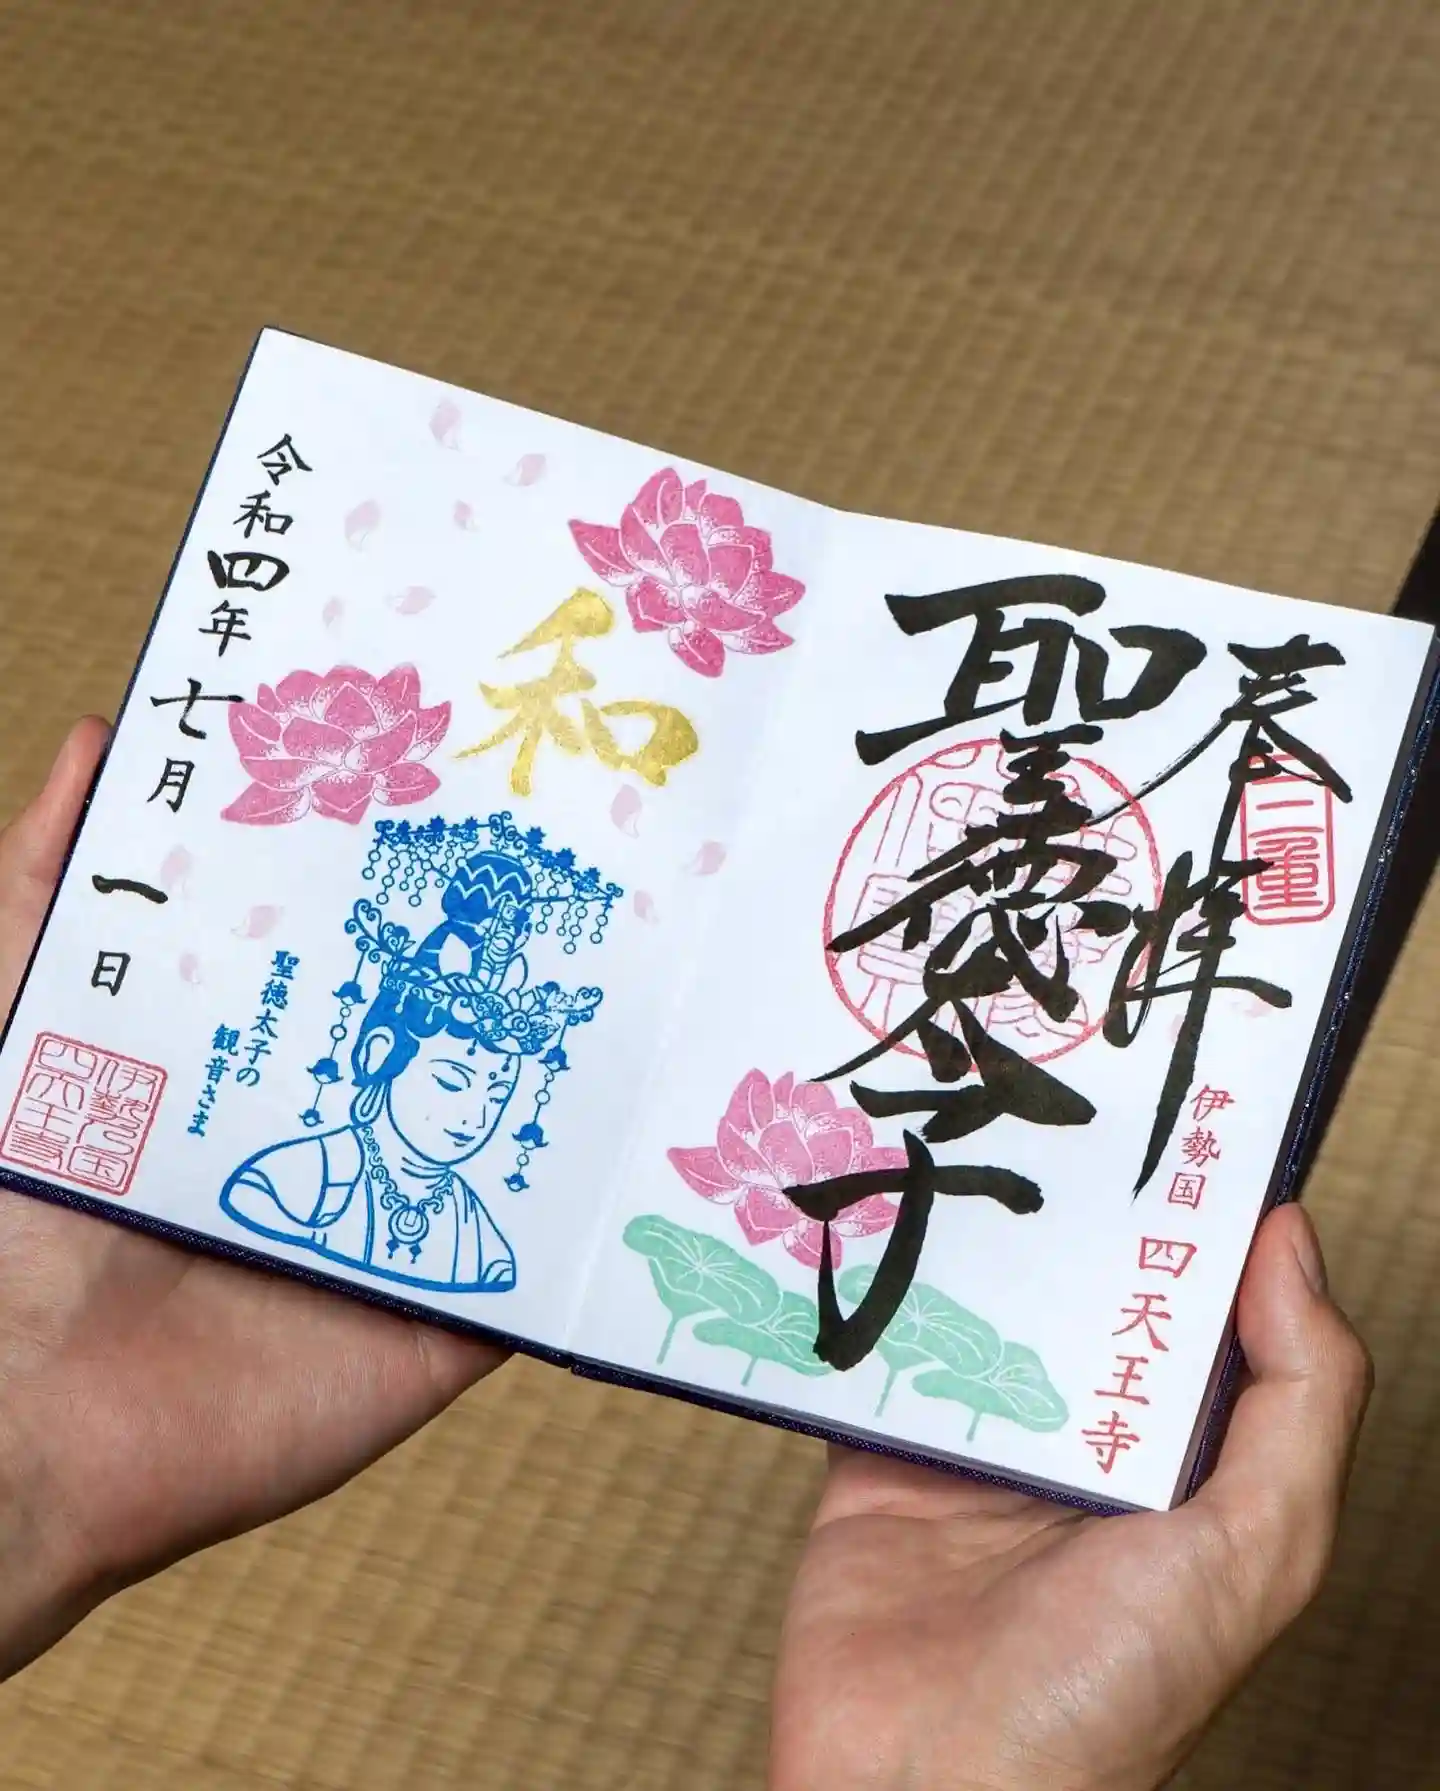 奉拝
三重
聖徳太子
伊勢国
四天王寺
和
聖徳太子の
観音さま
令和四年七月一日
伊勢国
四天王寺